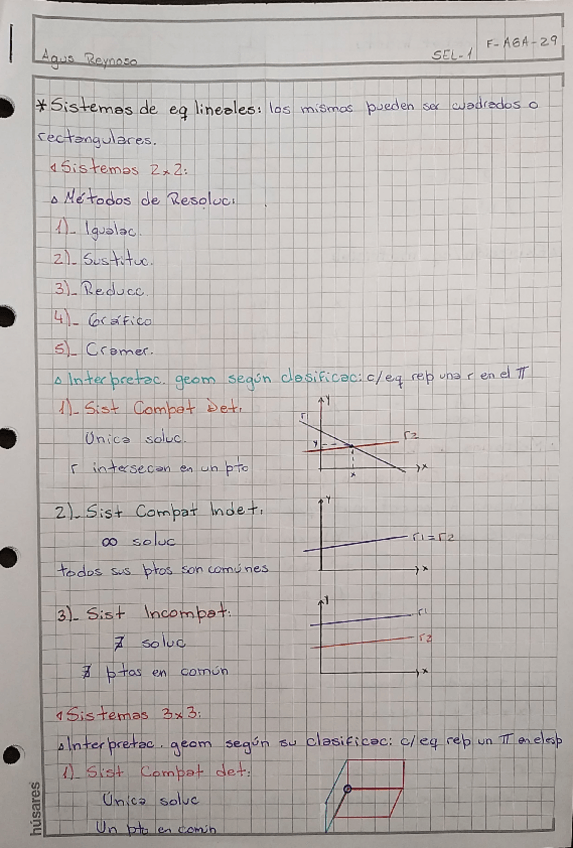 Agus Reynoso
SEL-1
F-AGA-29
* Sistemas de eq lineales: los mismos pueden ser cuadrados o
rectangulares.
Sistemas 2x2:
Métodos de Resoluc:
1)_ Igualac.
2)_ Sustituc.
3)_ Reducc.
4)_ Gráfico
5)_ Cramer.
Interpretac. geom según clasificac: c/eq rep una r en el π
1)_ Sist Compat Det.
Única soluc.
r intersecan en un pto
y
r
r2
y
x
x
2)_ Sist Compat Indet.
∞ soluc
todos sus ptos son comúnes
y
r1=r2
x
3)_ Sist Incompat.
∄ soluc
∄ ptos en común
y
r1
r2
x
Sistemas 3x3:
Interpretac. geom según su clasificac: c/eq rep un π en el esp
1)_ Sist Compat det:
Única soluc
Un pto en común
húsares